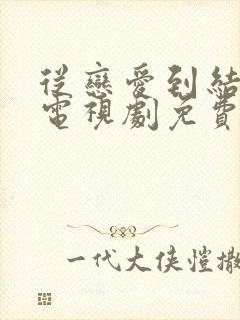 從戀愛到結
電視劇免費
一代大俠愷撒